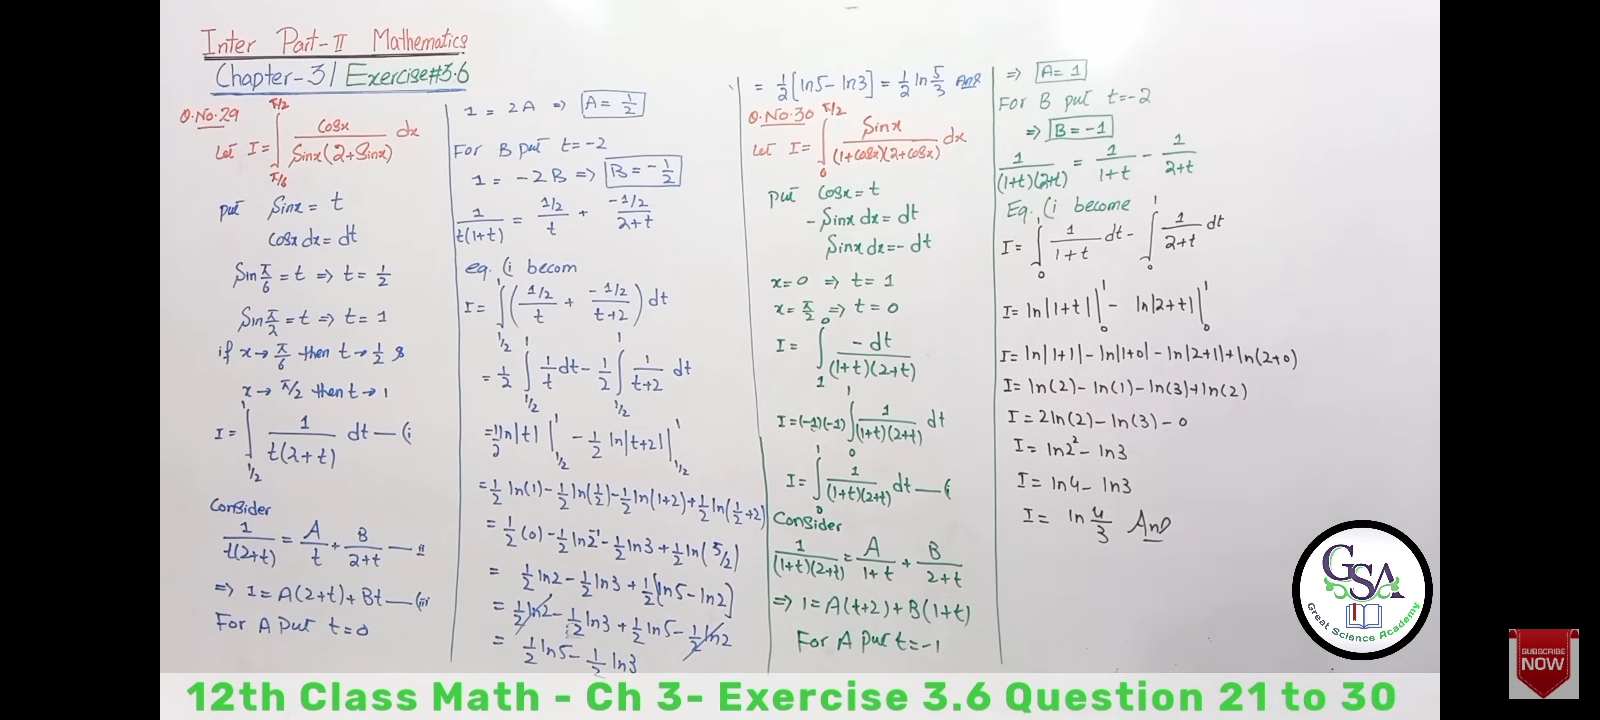 Inter Part-II Mathematics
Chapter-3/Exercise#3.6
Q.No.29
Let I = ∫_{π/6}^{π/2} cosx / sinx(2+sinx) dx
put sinx = t
cosx dx = dt
Sin π/6 = t => t = 1/2
Sin π/2 = t => t = 1
if x → π/6 then t → 1/2 &
x → π/2 then t → 1
I = ∫_{1/2}^{1} 1/t(2+t) dt — (i
Consider
1/t(2+t) = A/t + B/2+t — ii
=> 1 = A(2+t) + Bt — (iii
For A put t=0
1 = 2A => A = 1/2
For B put t=-2
1 = -2B => B = -1/2
1/t(1+t) = 1/2/t + -1/2/2+t
eq. (i becom
I = ∫_{1/2}^{1} (1/2/t + -1/2/t+2) dt
= 1/2 ∫_{1/2}^{1} 1/t dt - 1/2 ∫_{1/2}^{1} 1/t+2 dt
= 1/2 ln|t| |_{1/2}^{1} - 1/2 ln|t+2| |_{1/2}^{1}
= 1/2 ln(1) - 1/2 ln(1/2) - 1/2 ln(1+2) + 1/2 ln(1/2+2)
= 1/2 (0) - 1/2 ln2^{-1} - 1/2 ln3 + 1/2 ln(5/2)
= 1/2 ln2 - 1/2 ln3 + 1/2 [ln5 - ln2]
= 1/2 ln2 - 1/2 ln3 + 1/2 ln5 - 1/2 ln2
= 1/2 ln5 - 1/2 ln3
= 1/2 [ln5 - ln3] = 1/2 ln 5/3 Ans
Q.No.30
Let I = ∫_{0}^{π/2} Sinx / (1+cosx)(2+cosx) dx
put cosx = t
-Sinx dx = dt
Sinx dx = -dt
x=0 => t = 1
x = π/2 => t = 0
I = ∫_{1}^{0} -dt / (1+t)(2+t)
I = (-1)(-1) ∫_{0}^{1} 1/(1+t)(2+t) dt
I = ∫_{0}^{1} 1/(1+t)(2+t) dt — (i
Consider
1/(1+t)(2+t) = A/1+t + B/2+t
=> 1 = A(t+2) + B(1+t)
For A put t=-1
=> A = 1
For B put t=-2
=> B = -1
1/(1+t)(2+t) = 1/1+t - 1/2+t
Eq. (i become
I = ∫_{0}^{1} 1/1+t dt - ∫_{0}^{1} 1/2+t dt
I = ln|1+t| |_{0}^{1} - ln|2+t| |_{0}^{1}
I = ln|1+1| - ln|1+0| - ln|2+1| + ln(2+0)
I = ln(2) - ln(1) - ln(3) + ln(2)
I = 2ln(2) - ln(3) - 0
I = ln2² - ln3
I = ln4 - ln3
I = ln 4/3 Ans
GSA
Great Science Academy
SUBSCRIBE
NOW
12th Class Math - Ch 3- Exercise 3.6 Question 21 to 30